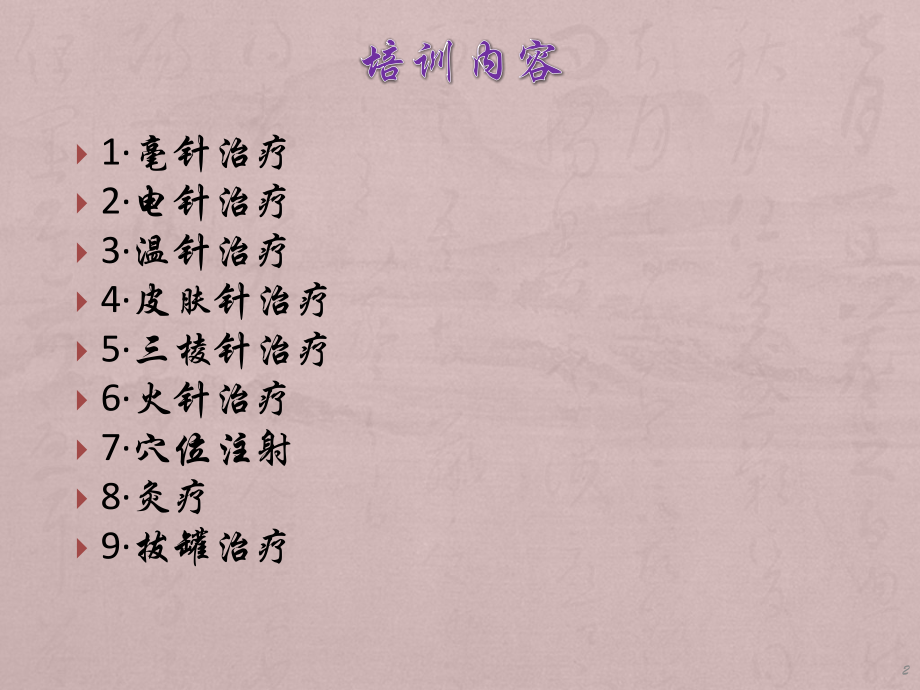 培训内容
1·毫针治疗
2·电针治疗
3·温针治疗
4·皮肤针治疗
5·三棱针治疗
6·火针治疗
7·穴位注射
8·灸疗
9·拔罐治疗
2